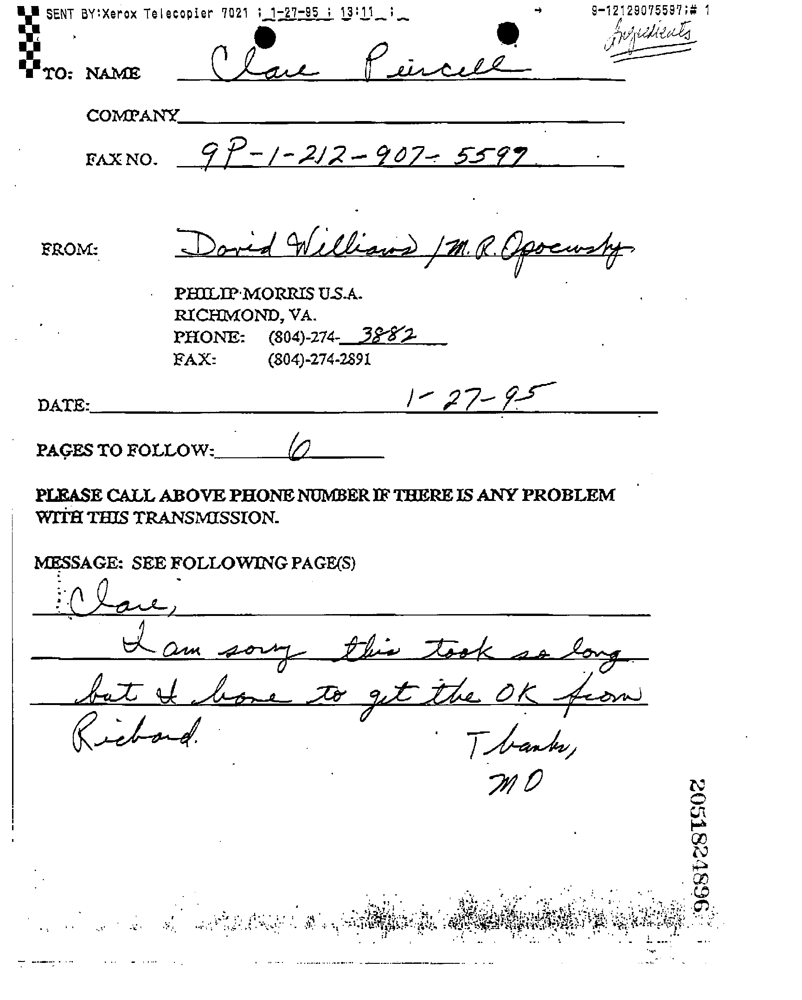 SENT BY:Xerox Telecopier 7021 ; 1-27-95 ; 13:11 ; → 9-12129075597;# 1
Ingredients
TO: NAME Clare Purcell
COMPANY
FAX NO. 9P-1-212-907-5597
FROM: David Williams / M.R.
PHILIP MORRIS U.S.A.
RICHMOND, VA.
PHONE: (804)-274-3882
FAX: (804)-274-2891
DATE: 1-27-95
PAGES TO FOLLOW: 6
PLEASE CALL ABOVE PHONE NUMBER IF THERE IS ANY PROBLEM
WITH THIS TRANSMISSION.
MESSAGE: SEE FOLLOWING PAGE(S)
Clare,
I am sorry this took so long
but I have to get the OK from
Richard.
Thanks,
MO
2051824896